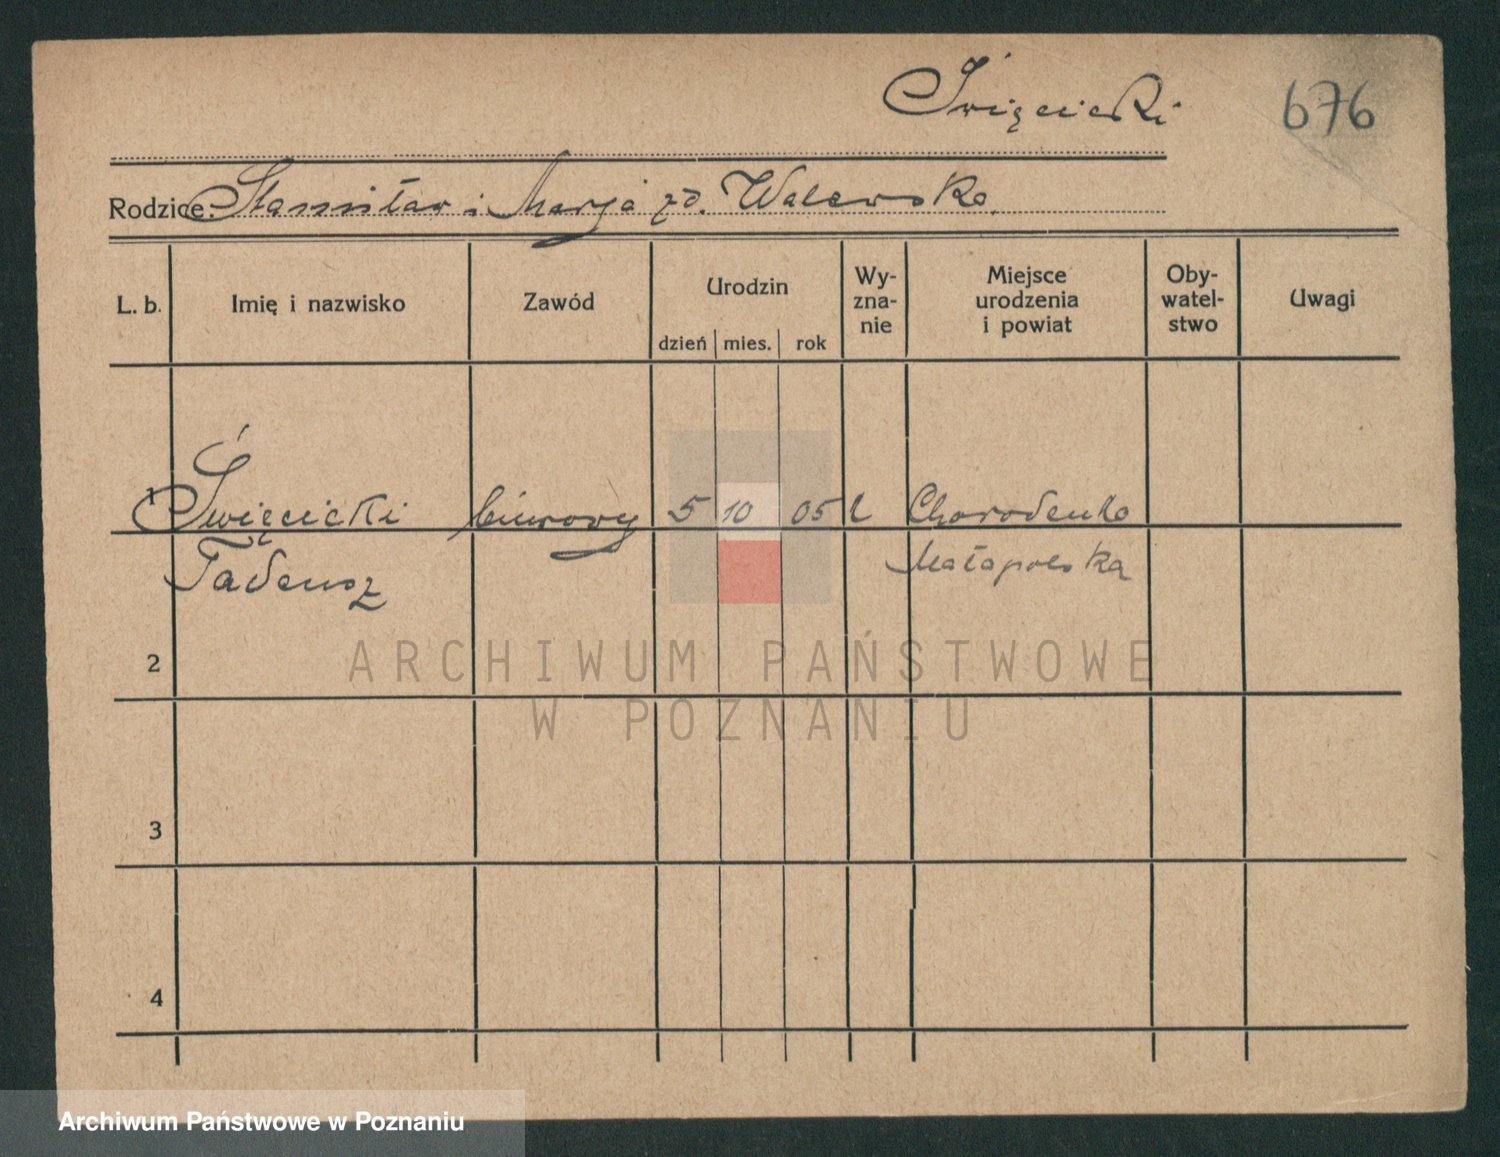 Święcicki 676
Rodzice: Stanisław i Marja zd. Walewska
L. b. Imię i nazwisko Zawód Urodzin Wy-zna-nie Miejsce urodzenia i powiat Oby-watel-stwo Uwagi
dzień mies. rok
1 Święcicki biurowy 5 10 05 Chorodenko
Tadeusz Małopolska
2
ARCHIWUM PAŃSTWOWE
W POZNANIU
3
4
Archiwum Państwowe w Poznaniu